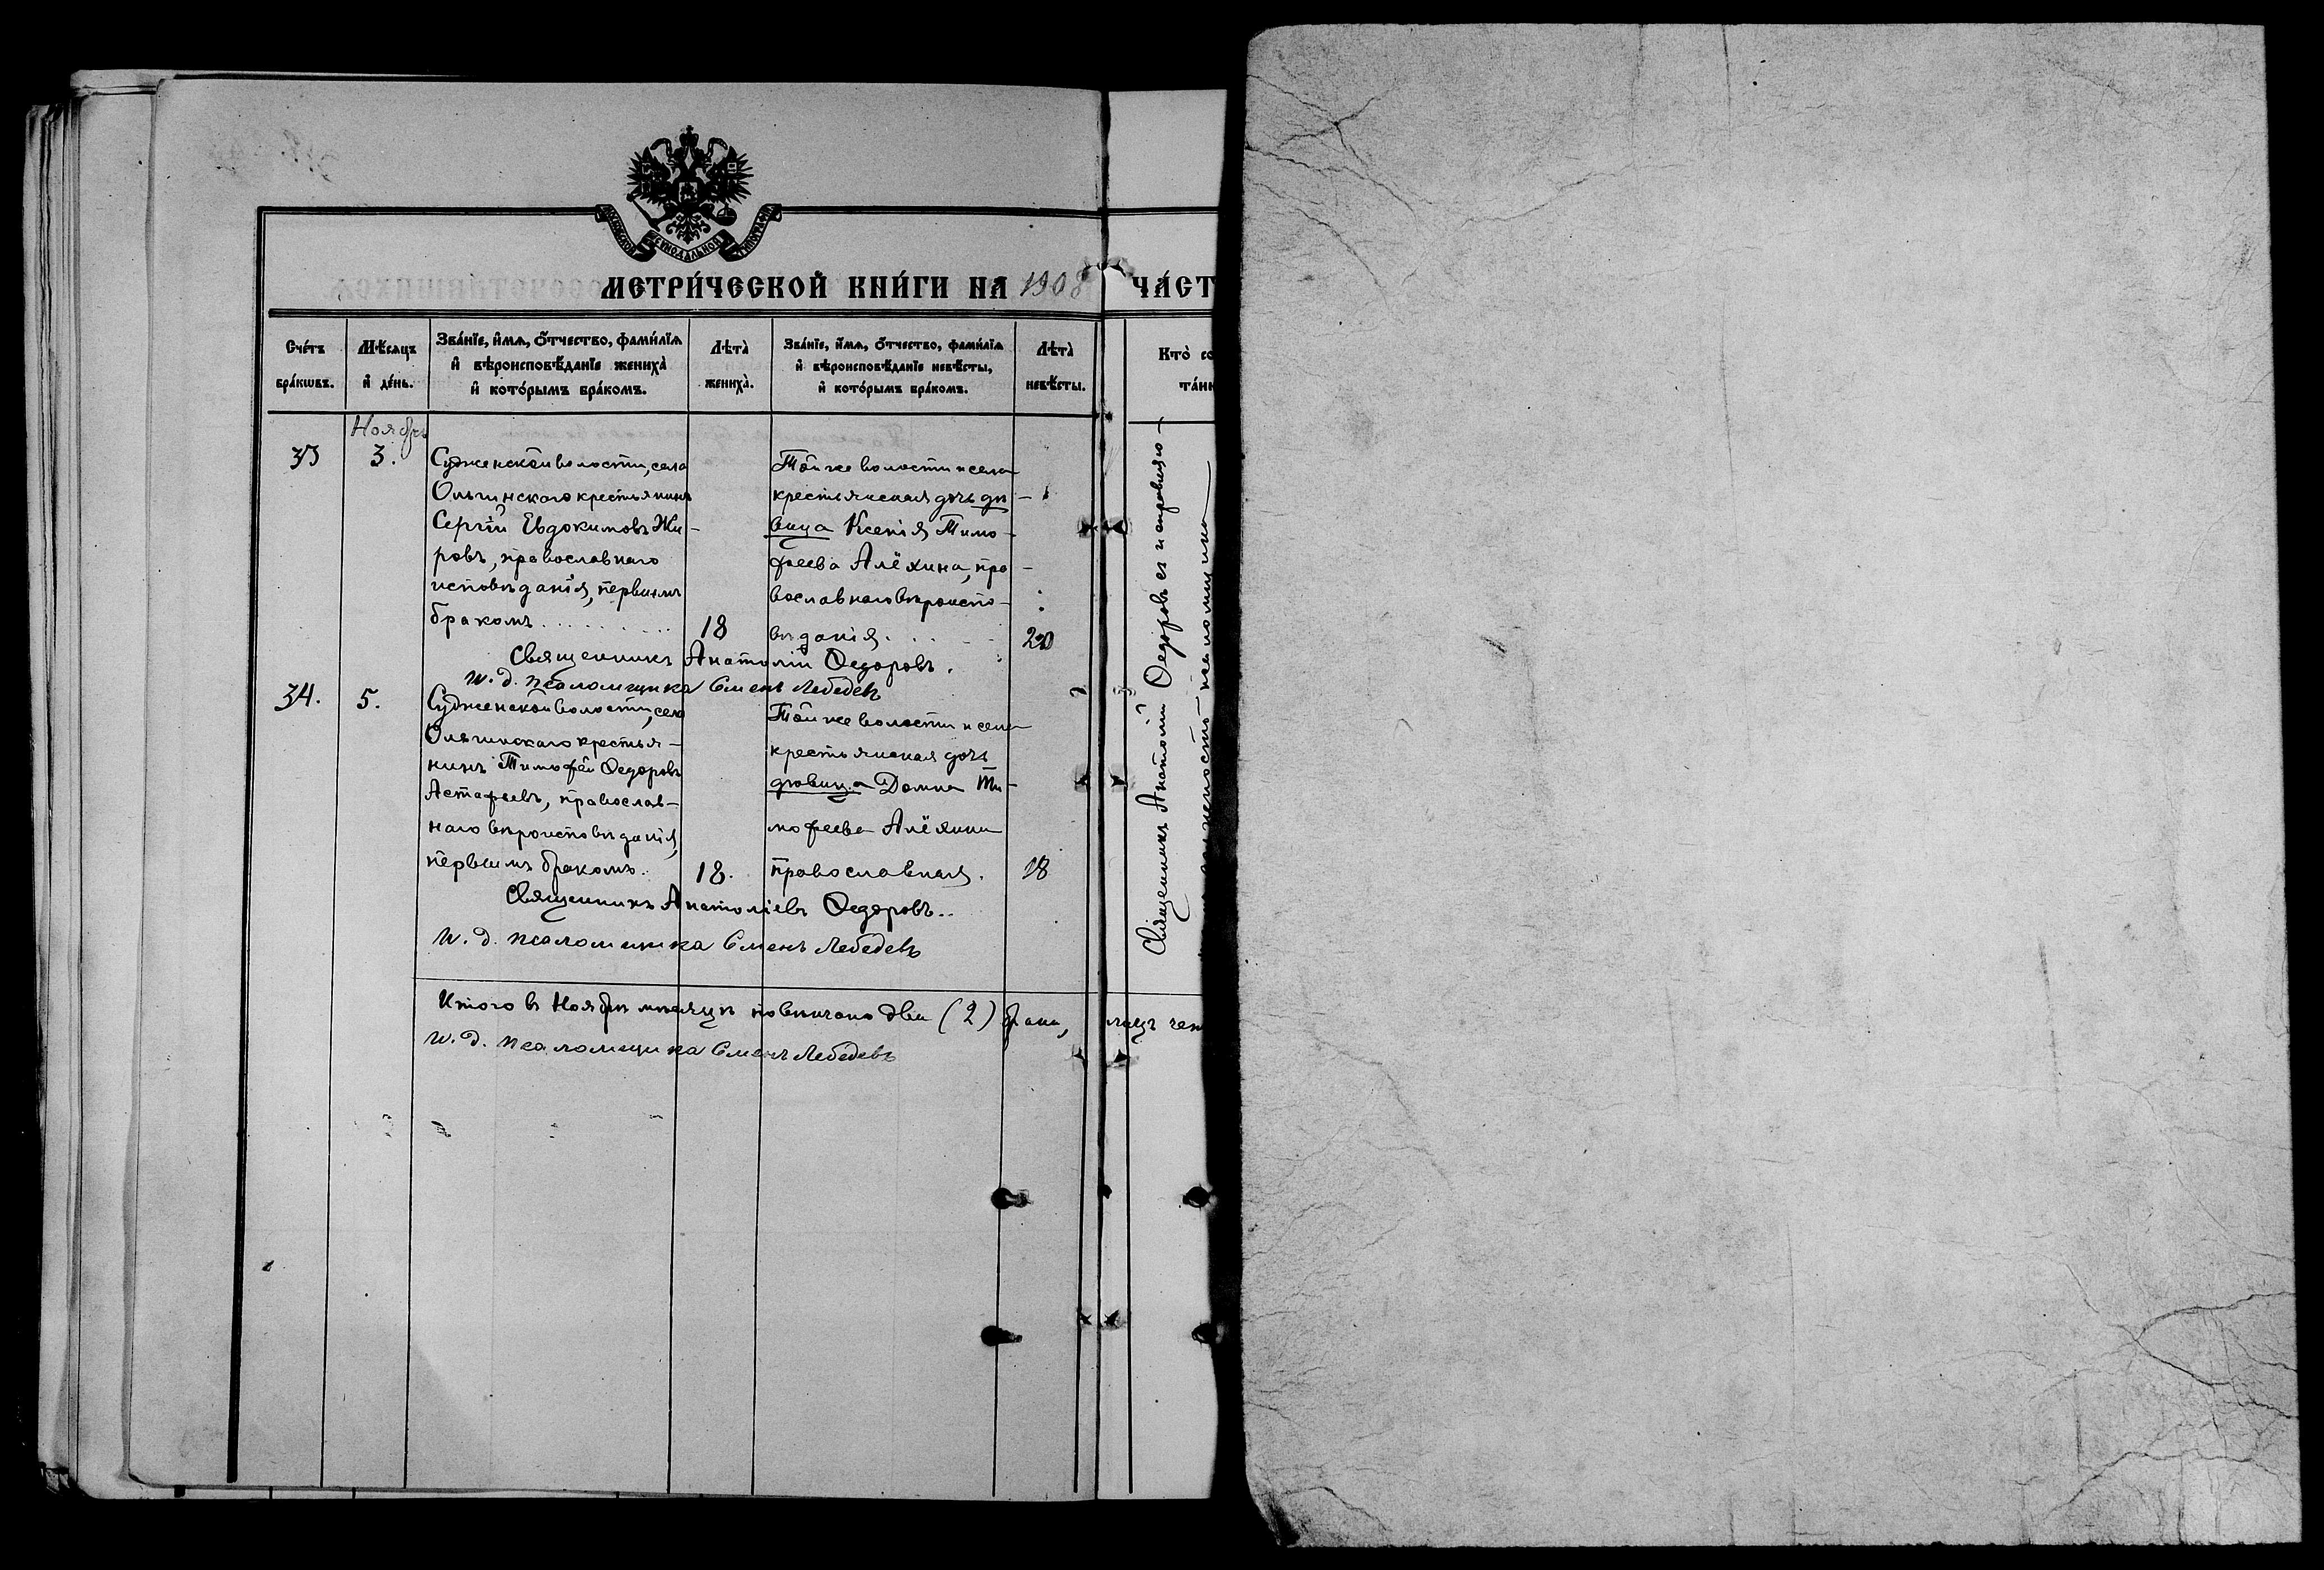 МОСКОВСКОЙ СѴНОДАЛЬНОЙ ТИПОГРАФІИ
МЕТРИ́ЧЕСКОЙ КНИ́ГИ НА 1908
ЧА́СТ
Сче́тъ бра́кѡвъ.
Мѣ́сяцъ и҆ де́нь.
Зва́нїе, и҆́мѧ, ѻ҆́тчество, фами́лїѧ
и҆ вѣроисповѣ́данїе жениха̀
и҆ кото́рымъ бра́комъ.
Лѣта̀ жениха̀.
Зва́нїе, и҆́мѧ, ѻ҆́тчество, фами́лїѧ
и҆ вѣроисповѣ́данїе невѣ́сты,
и҆ кото́рымъ бра́комъ.
Лѣта̀ невѣ́сты.
Кто̀ со
та́ин
Ноябрь
33
3.
Судженской волости, села
Ольгинскаго крестьянинъ
Сергій Евдокимовъ Жи-
ровъ, православнаго
исповѣданія, первымъ
бракомъ
18
Той же волости и села
крестьянская дочь дѣ-
вица Ксенія Тимо-
феева Алёхина, пра-
вославнаго вѣроиспо-
вѣданія.
20
Священникъ Анатолій Ѳедоровъ.
И. д. псаломщика Семенъ Лебедевъ
34.
5.
Судженской волости, села
Ольгинскаго крестья-
нинъ Тимофей Ѳедоровъ
Астафьевъ, православ-
наго вѣроисповѣданія,
первымъ бракомъ.
18.
Той же волости и села
крестьянская дочь
дѣвица Домна Ти-
мофеева Алёхина
православная.
18
Священникъ Анатоліевъ Ѳедоровъ..
И. д. псаломщика Семенъ Лебедевъ
Итого въ Ноябрѣ мѣсяцѣ повѣнчано два (2) брака, лицъ чет
И. д. псаломщика Семенъ Лебедевъ
Священникъ Анатолій Ѳедоровъ